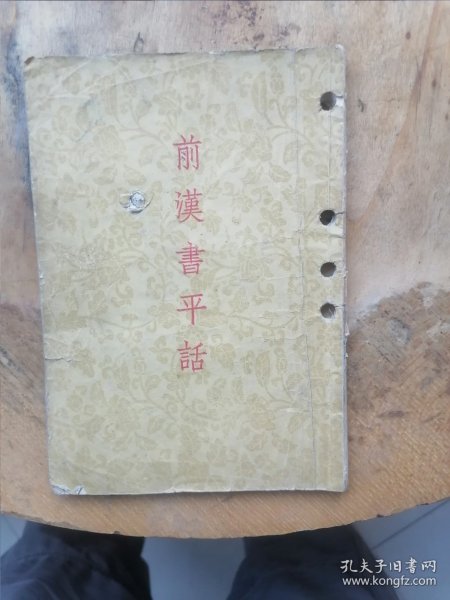 前漢書平話
孔夫子旧书网
www.kongfz.com